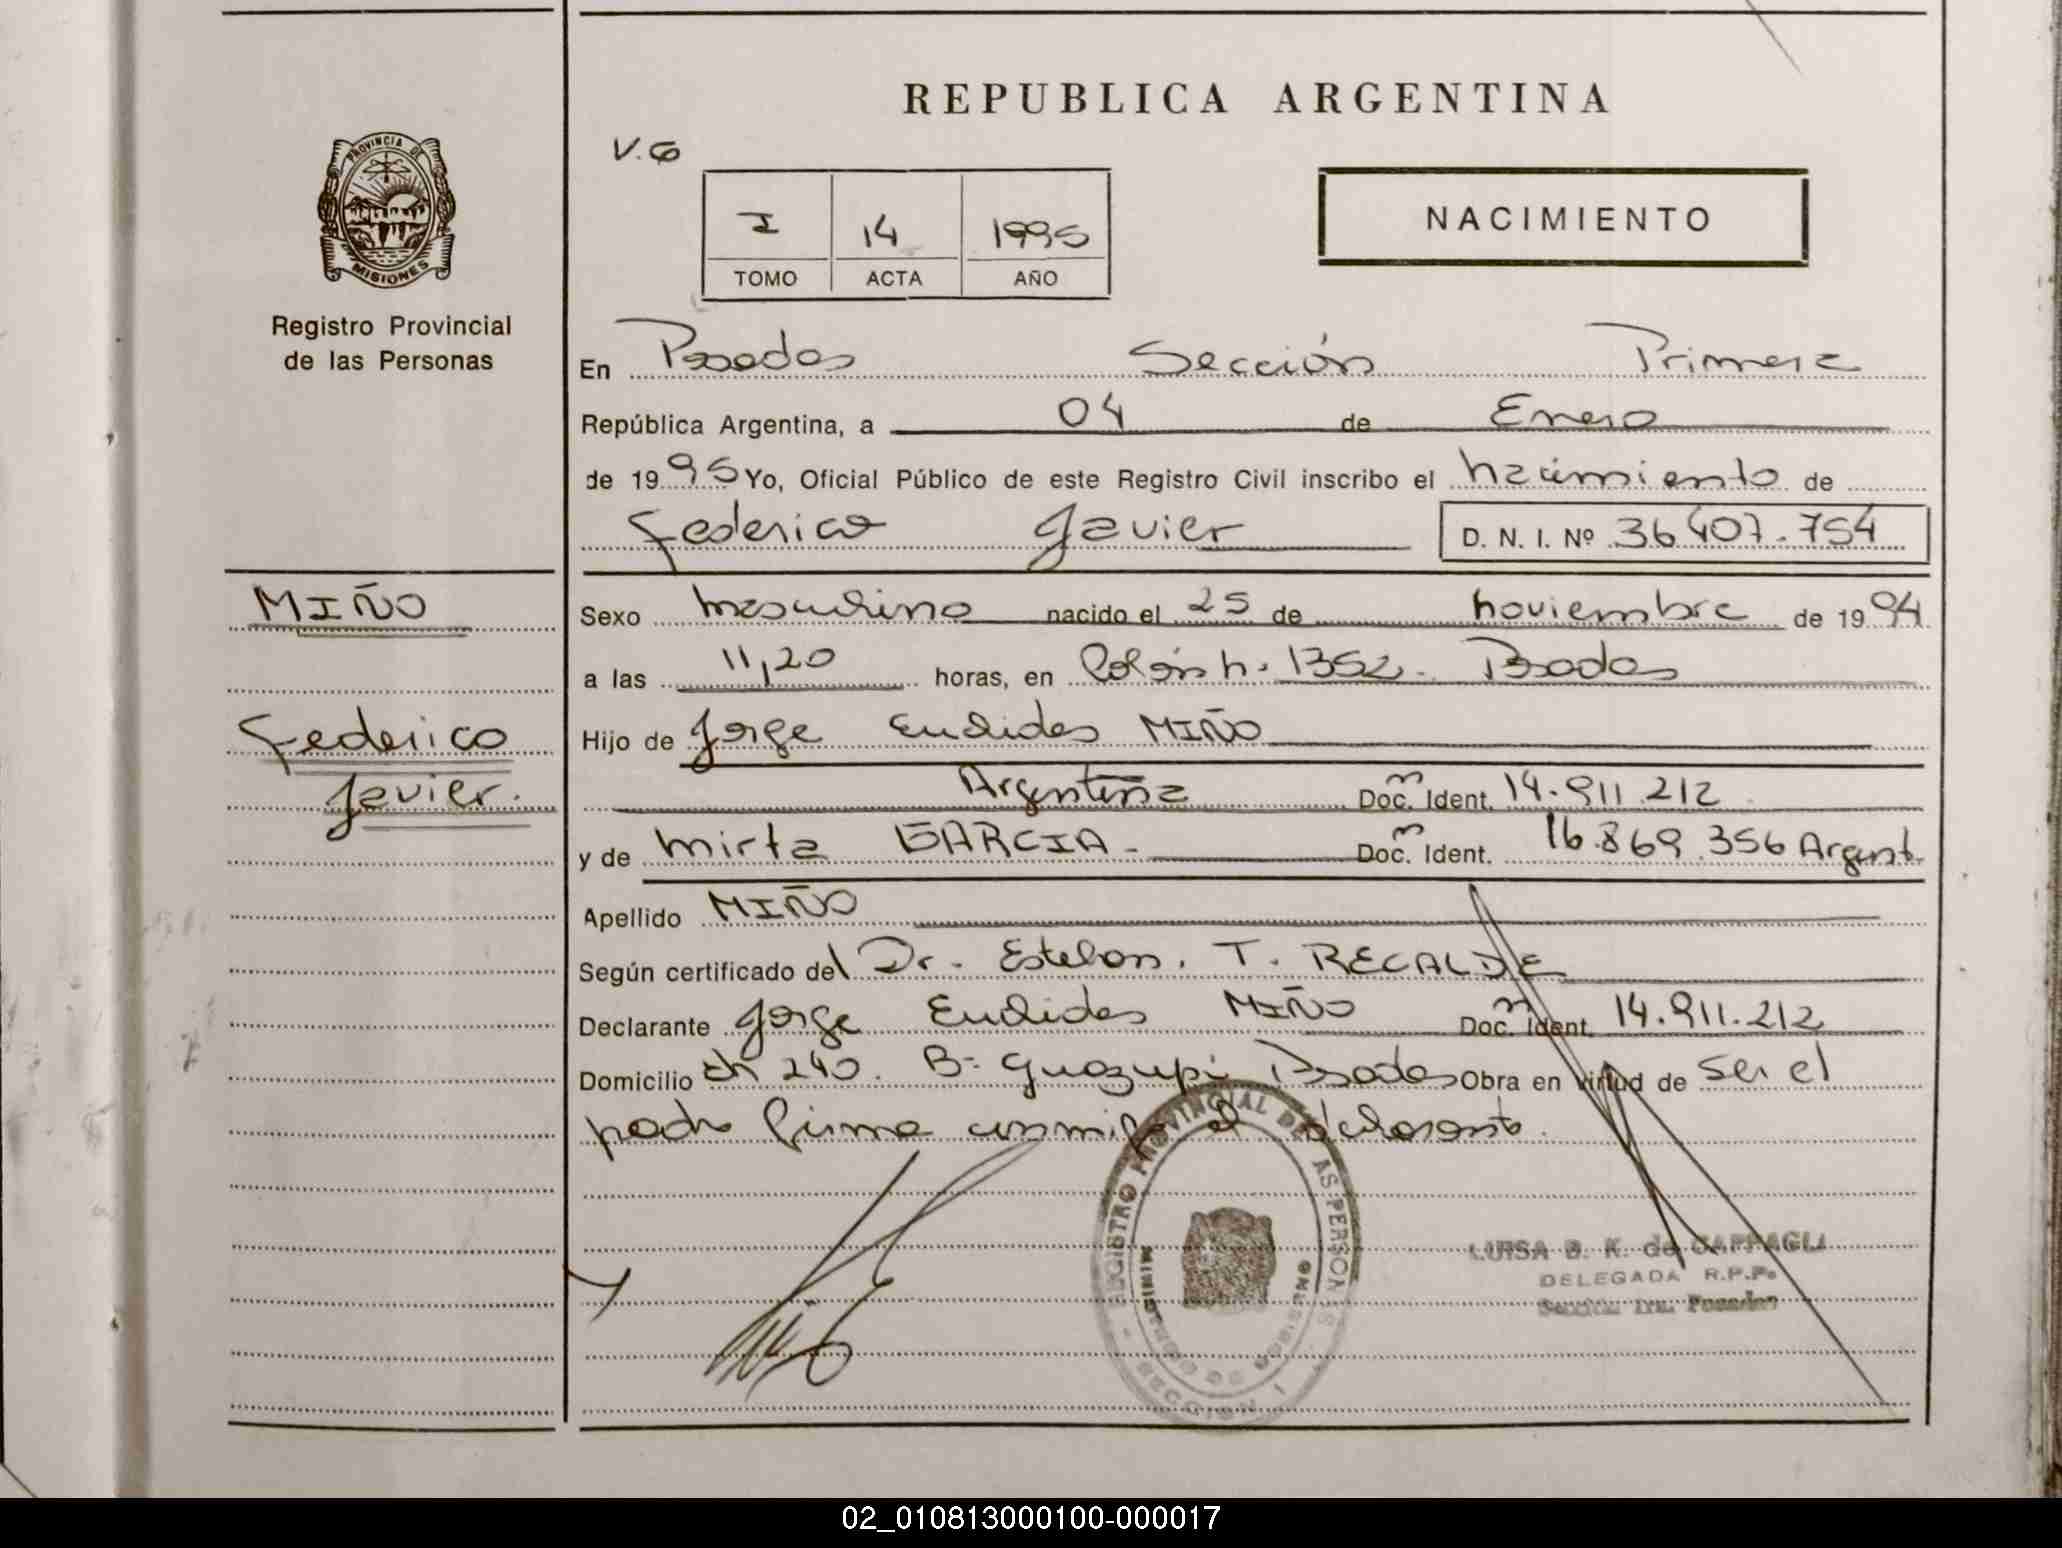 REPUBLICA ARGENTINA
V.G
PROVINCIA DE
MISIONES
Registro Provincial
de las Personas
NACIMIENTO
I 14 1995
TOMO ACTA AÑO
En Posadas Sección Primera
República Argentina, a 04 de Enero
de 1995 Yo, Oficial Público de este Registro Civil inscribo el nacimiento de
Federico Javier D. N. I. Nº 36407.754
MIÑO
Federico
Javier.
Sexo masculino nacido el 25 de noviembre de 1994
a las 11,20 horas, en Colón n. 1352. Posadas
Hijo de Jorge Euclides MIÑO
Argentina Doc. Ident. 14.911.212
y de Mirta GARCIA. Doc. Ident. 16.869.356 Argent.
Apellido MIÑO
Según certificado del Dr. Esteban. T. RECALDE
Declarante Jorge Euclides MIÑO Doc. Ident. 14.911.212
Domicilio ch 240. Bº Guazupi Posadas Obra en virtud de ser el
padre firma conmigo el declarante.
REGISTRO PROVINCIAL DE LAS PERSONAS
MINISTERIO DE GOBIERNO
- SECCION I -
LUISA B. K. de
DELEGADA R.P.P.
Sección 1ra. Posadas
02_010813000100-000017